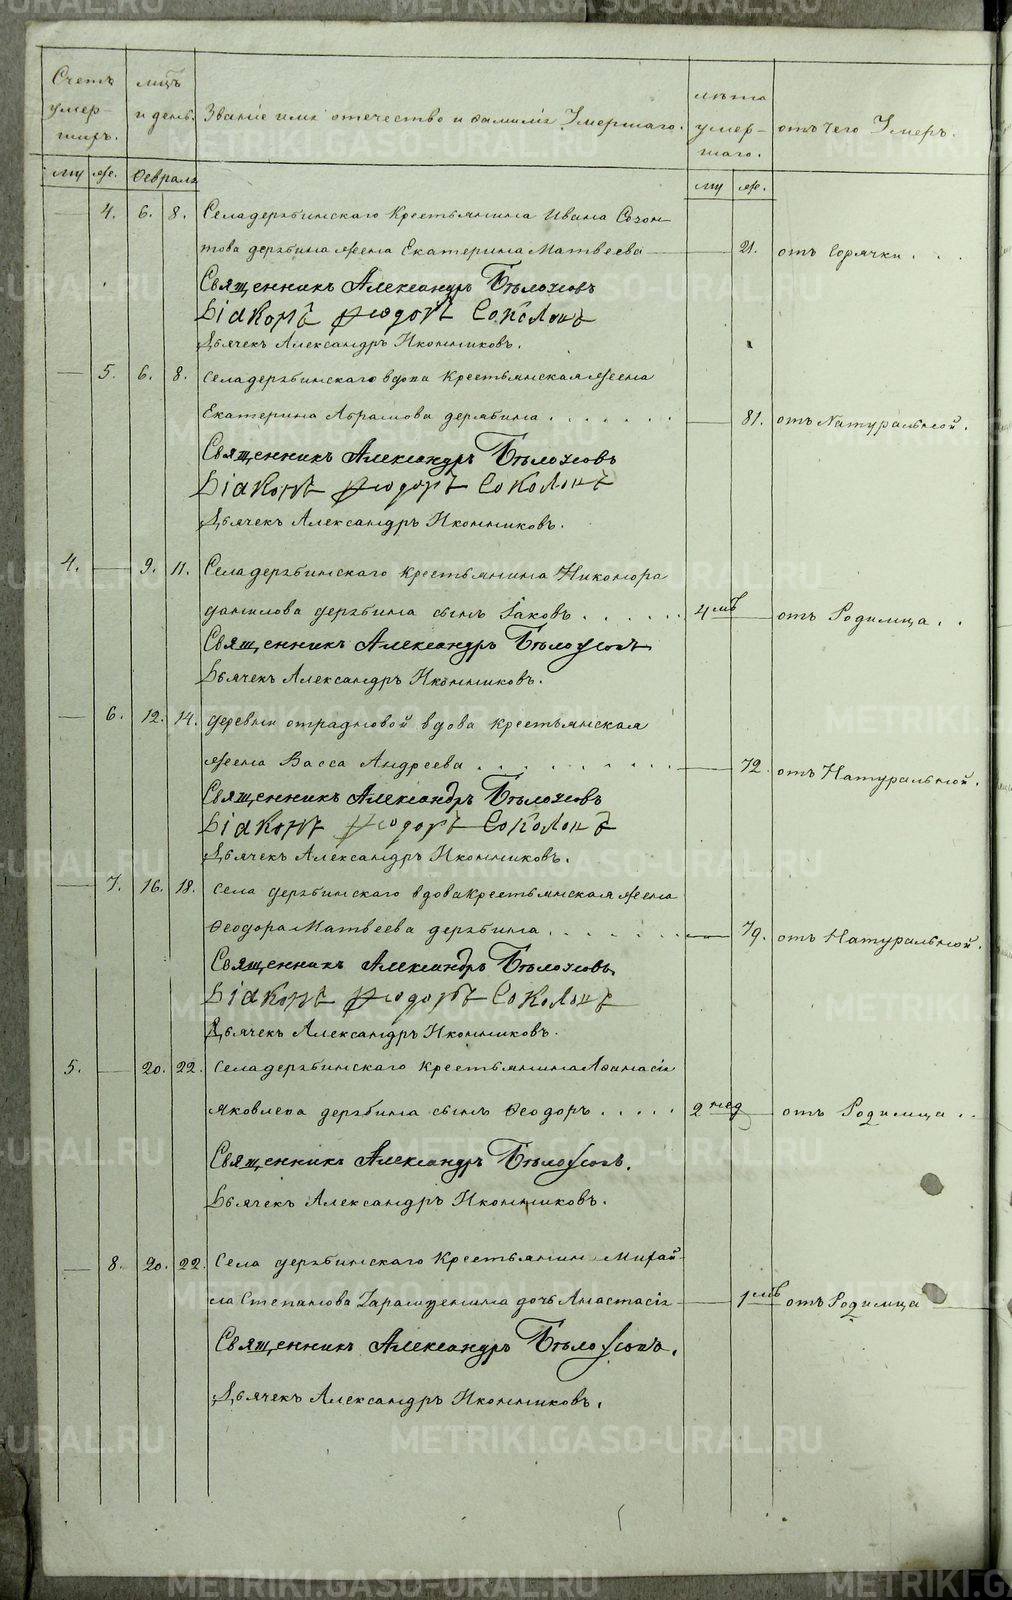 Счетъ умершихъ.
мцъ и день.
Званіе имя отечество и фамилія Умершаго.
лѣта умершаго.
отъ чего Умеръ.
му же. Февраль му же.
4. 6. 8. Селадерябинскаго Крестьянина Ивана Созон-
това дерябина жена Екатерина Матвеева 21. отъ Горячки . . .
Священникъ Александръ Бѣлоусовъ
Діаконъ Ѳеодоръ Соколовъ
Дьячекъ Александръ Иконниковъ.
5. 6. 8. селадерябинскаго вдова Крестьянская жена
Екатерина Абрамова дерябина . . . . . . 81. отъ Натуральной.
Священникъ Александръ Бѣлоусовъ
Діаконъ Ѳеодоръ Соколовъ
Дьячекъ Александръ Иконниковъ.
4. 9. 11. Селадерябинскаго крестьянина Никонора
данилова дерябина сынъ Іаковъ . . . . . . 4 мцъ отъ Родимца . .
Священникъ Александръ Бѣлоусовъ
Дьячекъ Александръ Иконниковъ.
6. 12. 14. деревни отрадновой вдова крестьянская
жена Васса Андреева . . . . . . . . 72. отъ Натуральной.
Священникъ Александръ Бѣлоусовъ
Діаконъ Ѳеодоръ Соколовъ
Дьячекъ Александръ Иконниковъ.
7. 16. 18. села дерябинскаго вдова крестьянская жена
Феодора Матвеева дерябина . . . . . . 79. отъ Натуральной.
Священникъ Александръ Бѣлоусовъ
Діаконъ Ѳеодоръ Соколовъ
Дьячекъ Александръ Иконниковъ.
5. 20. 22. Селадерябинскаго крестьянина Афанасія
Яковлева дерябина сынъ Феодоръ . . . . . 2 нед отъ Родимца . .
Священникъ Александръ Бѣлоусовъ.
Дьячекъ Александръ Иконниковъ.
8. 20. 22. Села дерябинскаго Крестьянин Михай-
ла Степанова дочь Анастасія 1 мцъ отъ Родимца
Священникъ Александръ Бѣлоусовъ.
Дьячекъ Александръ Иконниковъ.
METRIKI.GASO-URAL.RU